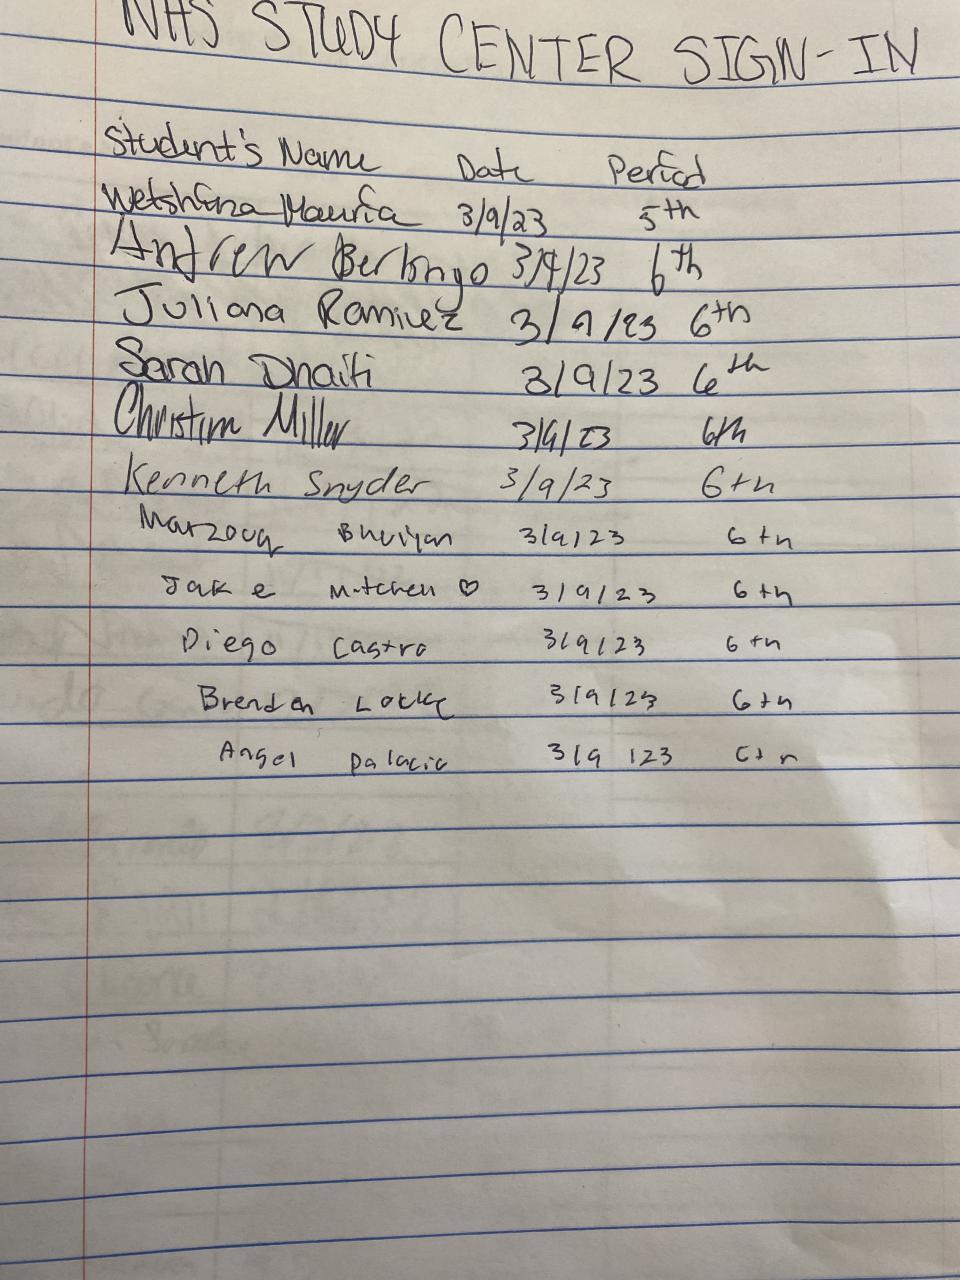 NHS STUDY CENTER SIGN-IN
Student's Name Date Period
Wetshina Mauria 3/9/23 5th
Andrew Berlongo 3/9/23 6th
Juliana Ramirez 3/9/23 6th
Sarah Dhaiti 3/9/23 6th
Miller 3/9/23 6th
Kenneth Snyder 3/9/23 6th
Marzouq Bhuiyan 3/9/23 6th
Jake Mitchell ♡ 3/9/23 6th
Diego Castro 3/9/23 6th
Brendan Locke 3/9/23 6th
Angel Palacio 3/9/23 6th